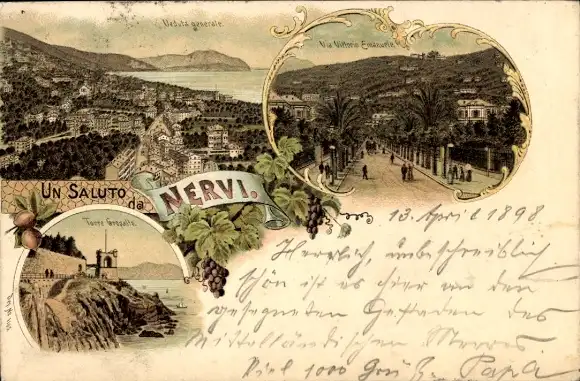 Veduta generale.
Via Vittorio Emanuele
UN SALUTO
da
NERVI.
Torre Gropallo
13. April 1898
Herrlich, unbeschreiblich
schön ist es hier an den
gesegneten Gestaden des
Mittelländischen Meeres
Viel 1000 Grüße Papa